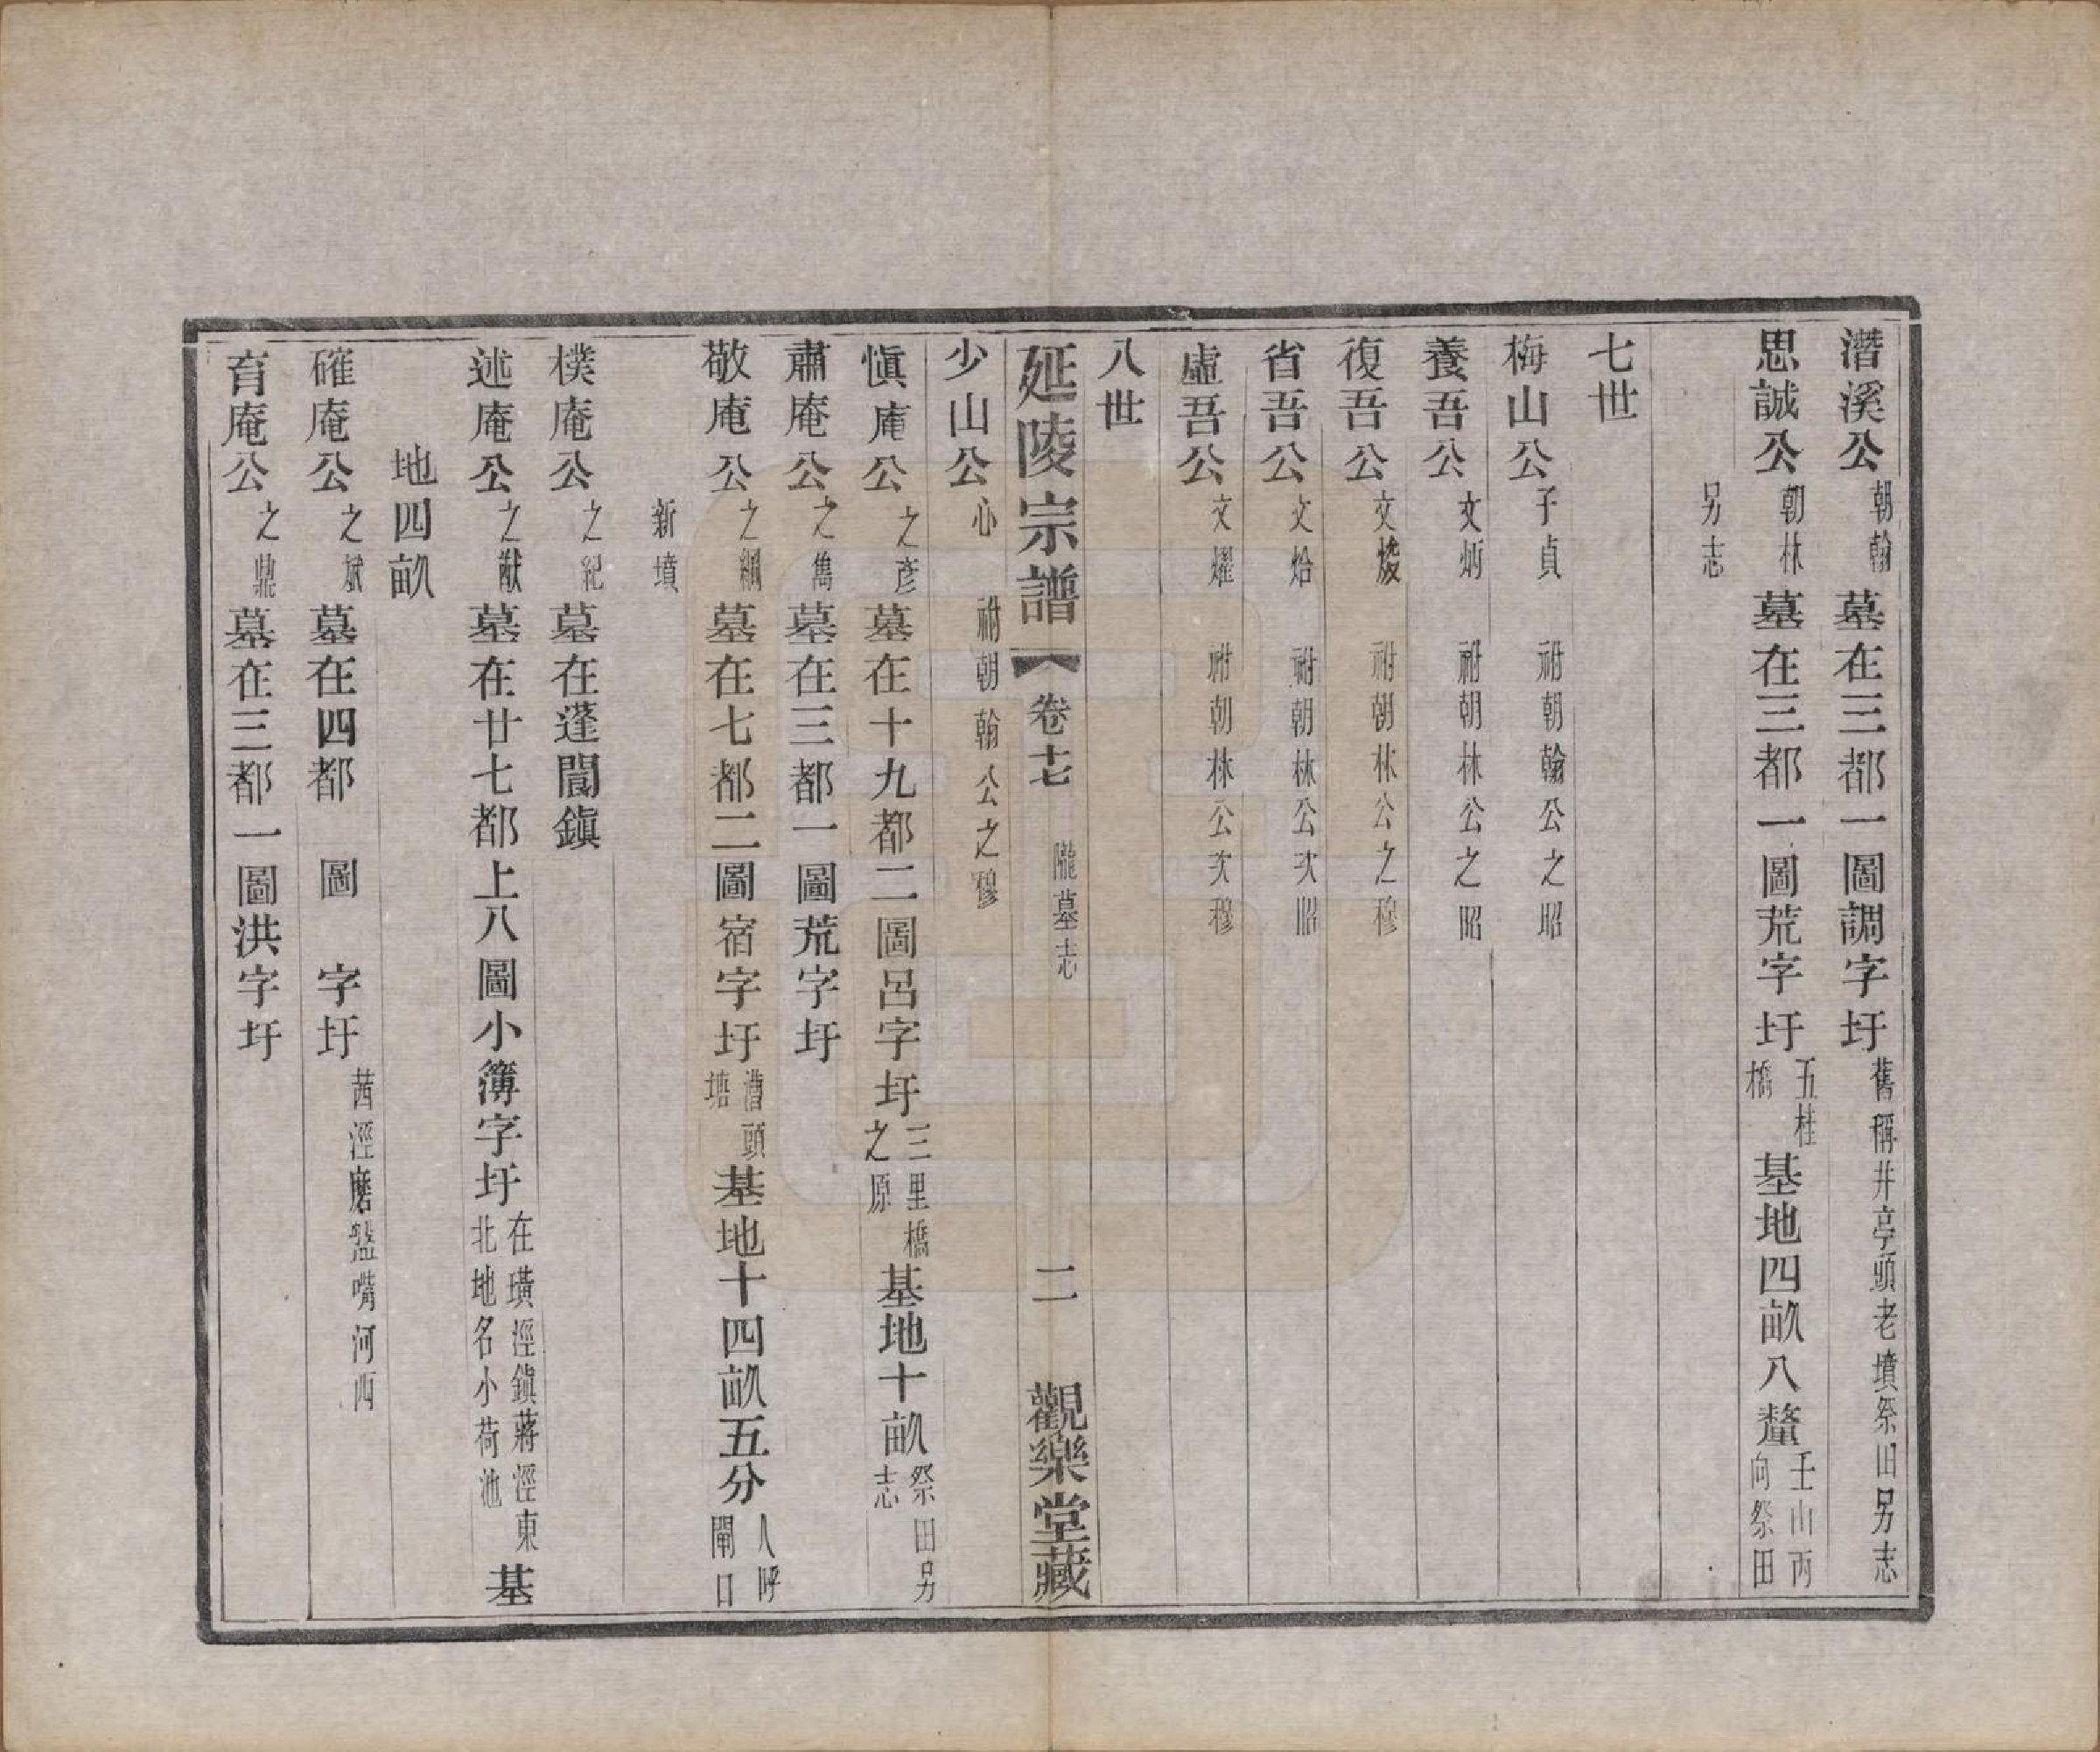 潛溪公朝翰墓在三都一圖調字圩舊稱井亭頭老墳祭田另志
思誠公朝林墓在三都一圖荒字圩五桂橋基地四畝八釐壬山丙向祭田
另志
七世
梅山公子貞祔朝翰公之昭
養吾公文炳祔朝林公之昭
復吾公文燧祔朝林公之穆
省吾公文焓祔朝林公次昭
虛吾公文燿祔朝林公次穆
八世
延陵宗譜 卷十七 隴墓志 二 觀樂堂藏
少山公心祔朝翰公之穆
愼庵公之彥墓在十九都二圖呂字圩三里橋之原基地十畝祭田另志
肅庵公之雋墓在三都一圖荒字圩
敬庵公之綱墓在七都二圖宿字圩漕頭塘基地十四畝五分人呼閘口
新墳
樸庵公之紀墓在蓬閬鎭
述庵公之猷墓在廿七都上八圖小簿字圩在璜涇鎭蔣涇東北地名小荷池基
地四畝
確庵公之斌墓在四都 圖 字圩茜涇磨盤嘴河西
育庵公之鼎墓在三都一圖洪字圩